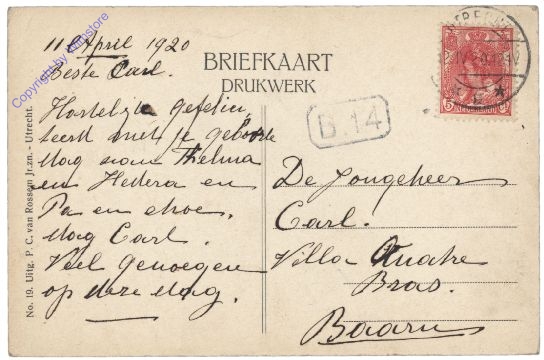 Copyright by Winstore
11 April 1920
Beste Carl.
Hartelijk gefelici
teerd met je geboorte
dag van Thelma
en Hedera en
Pa en Moe.
dag Carl.
Veel genoegen
op deze dag.
No. 19. Uitg. P. C. van Rossem Jr.zn. - Utrecht.
BRIEFKAART
DRUKWERK
B.14
5
NEDERLAND
De Jongeheer
Carl.
Villa
Baarn